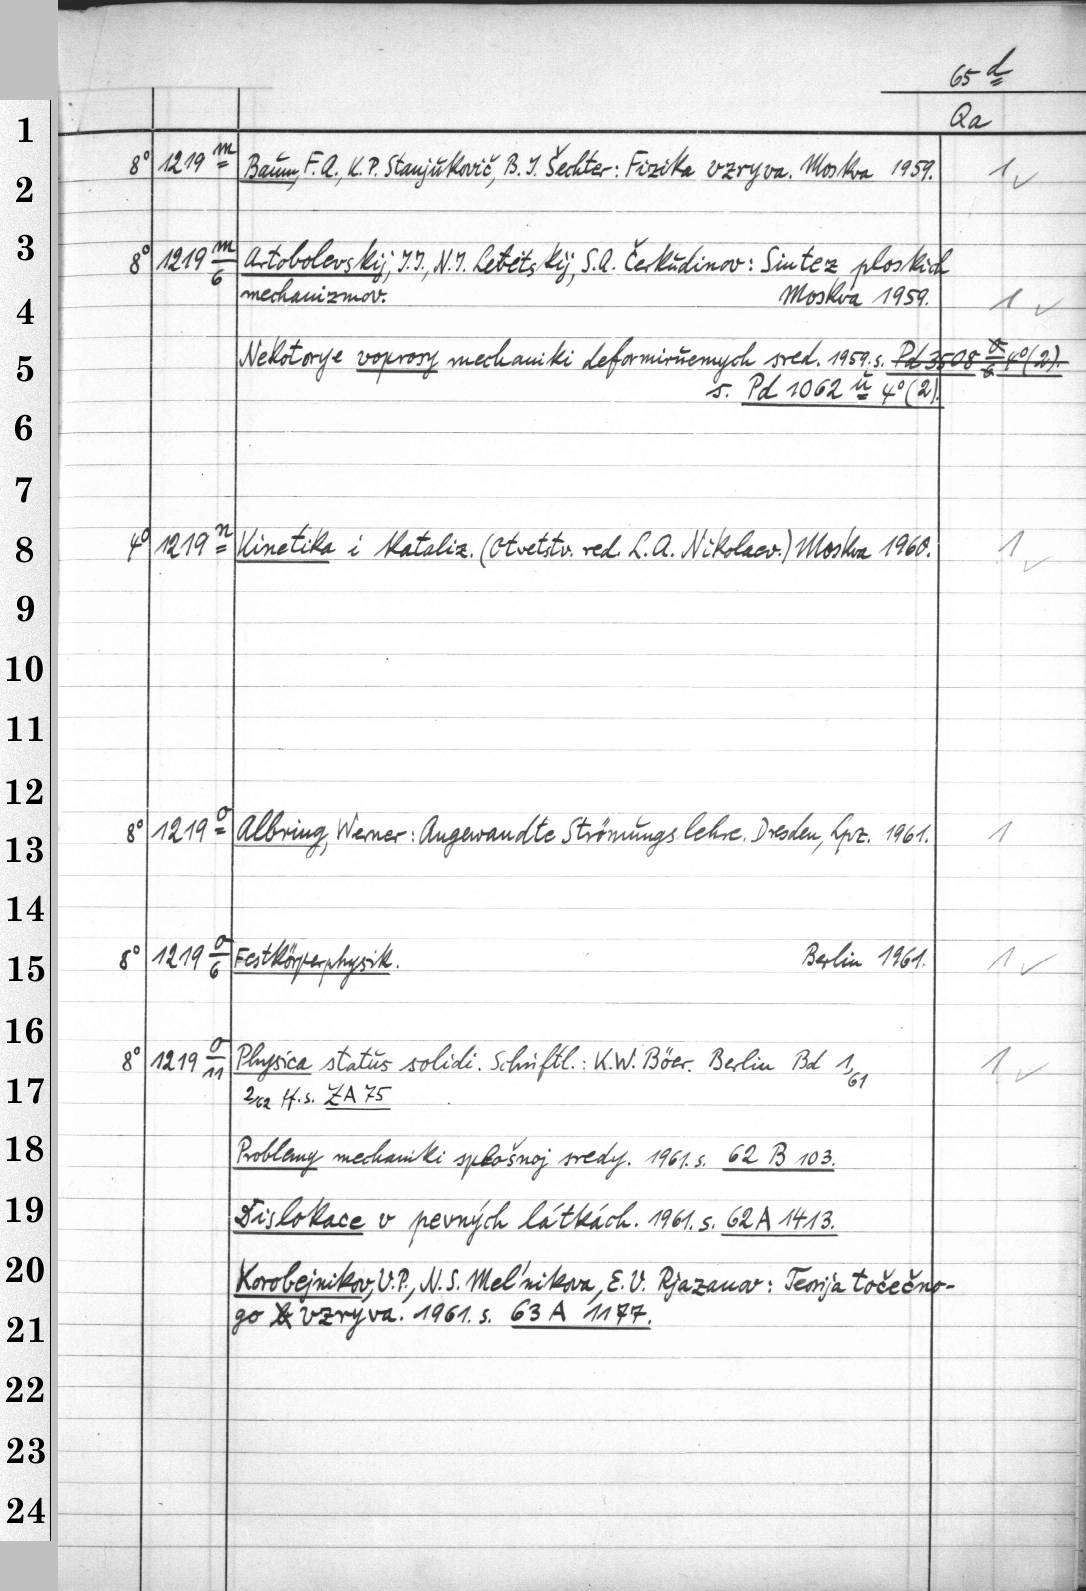 65 d
Qa
1
8° 1219 m Baum, F. A., K. P. Stanjukovič, B. I. Šechter: Fizika vzryva. Moskva 1959. 1
2
3
8° 1219 m/6 Artobolevskij, I. I., N. I. Levitskij, S. A. Čerkudinov: Sintez ploskich
mechanizmov. Moskva 1959. 1
4
Nekotorye voprosy mechaniki deformiruemych sred. 1959. s. Pd 3508 4° (2).
5
s. Pd 1062 u 4° (2).
6
7
4° 1219 n Kinetika i kataliz. (Otvetstv. red. L. A. Nikolaev.) Moskva 1960. 1
8
9
10
11
12
8° 1219 o Albring, Werner: Angewandte Strömungslehre. Dresden, Lpz. 1961. 1
13
14
8° 1219 o/6 Festkörperphysik. Berlin 1961. 1
15
16
8° 1219 o/11 Physica status solidi. Schriftl.: K. W. Böer. Berlin Bd 1/61 1
17
2/62 ff. s. ZA 75
18
Problemy mechaniki splošnoj sredy. 1961. s. 62 B 103.
19
Dislokace v pevných látkách. 1961. s. 62 A 1413.
20
Korobejnikov, V. P., N. S. Mel'nikova, E. V. Rjazanov: Teorija točečno-
go vzryva. 1961. s. 63 A 1177.
21
22
23
24